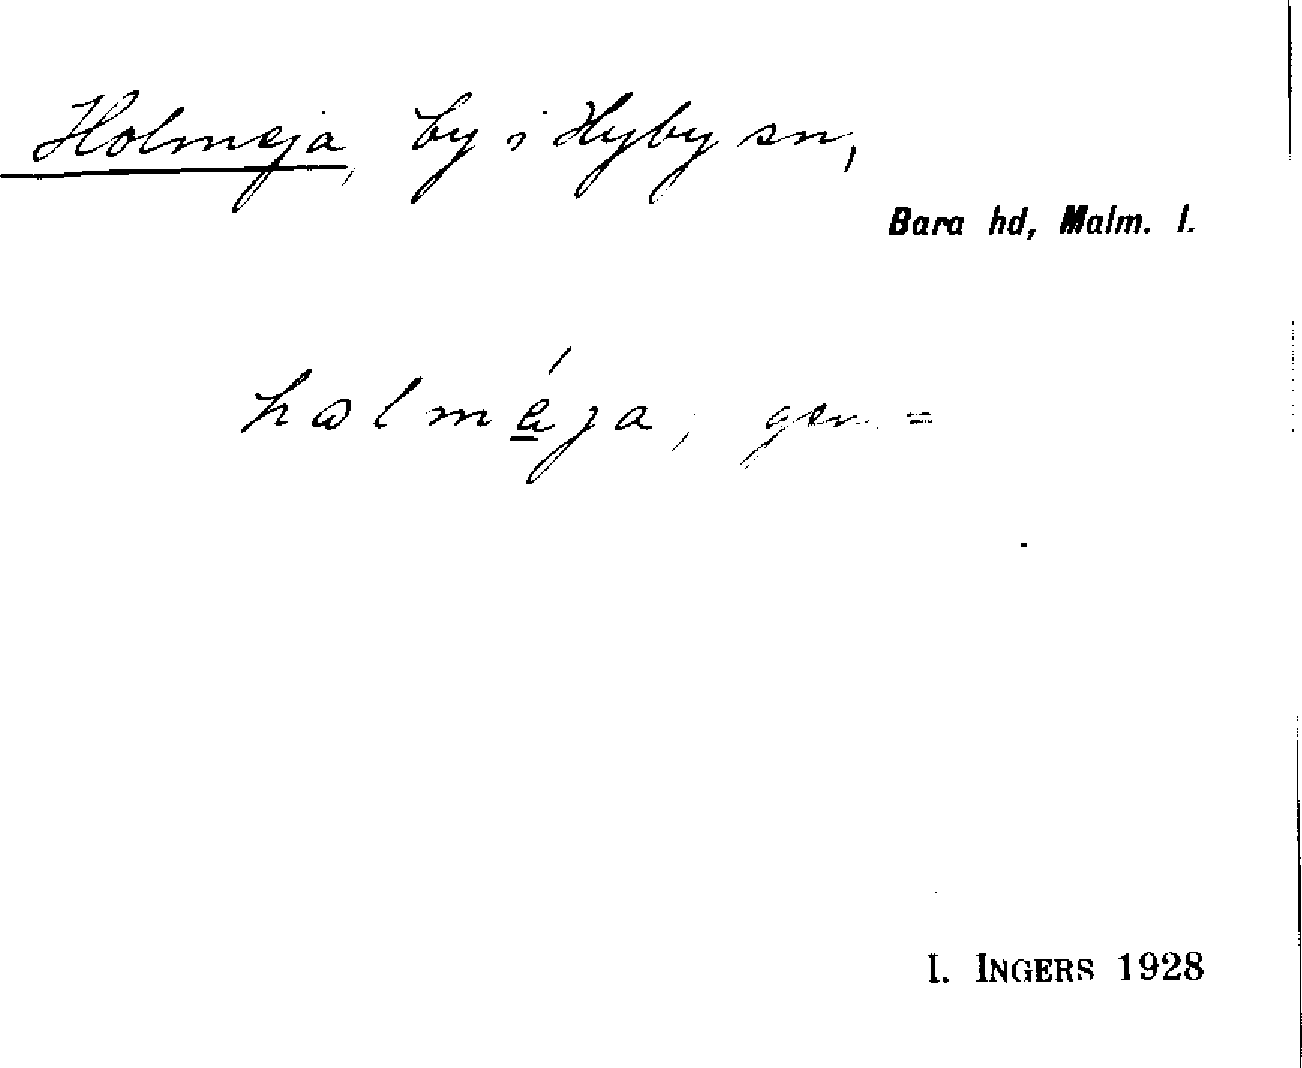 Holmeja, by i Hyby sn,
Bara hd, Malm. l.
holmé̲ja, gen. =
I. INGERS 1928